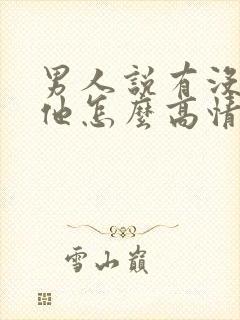 男人說有没
他怎麼高情
雪山巔